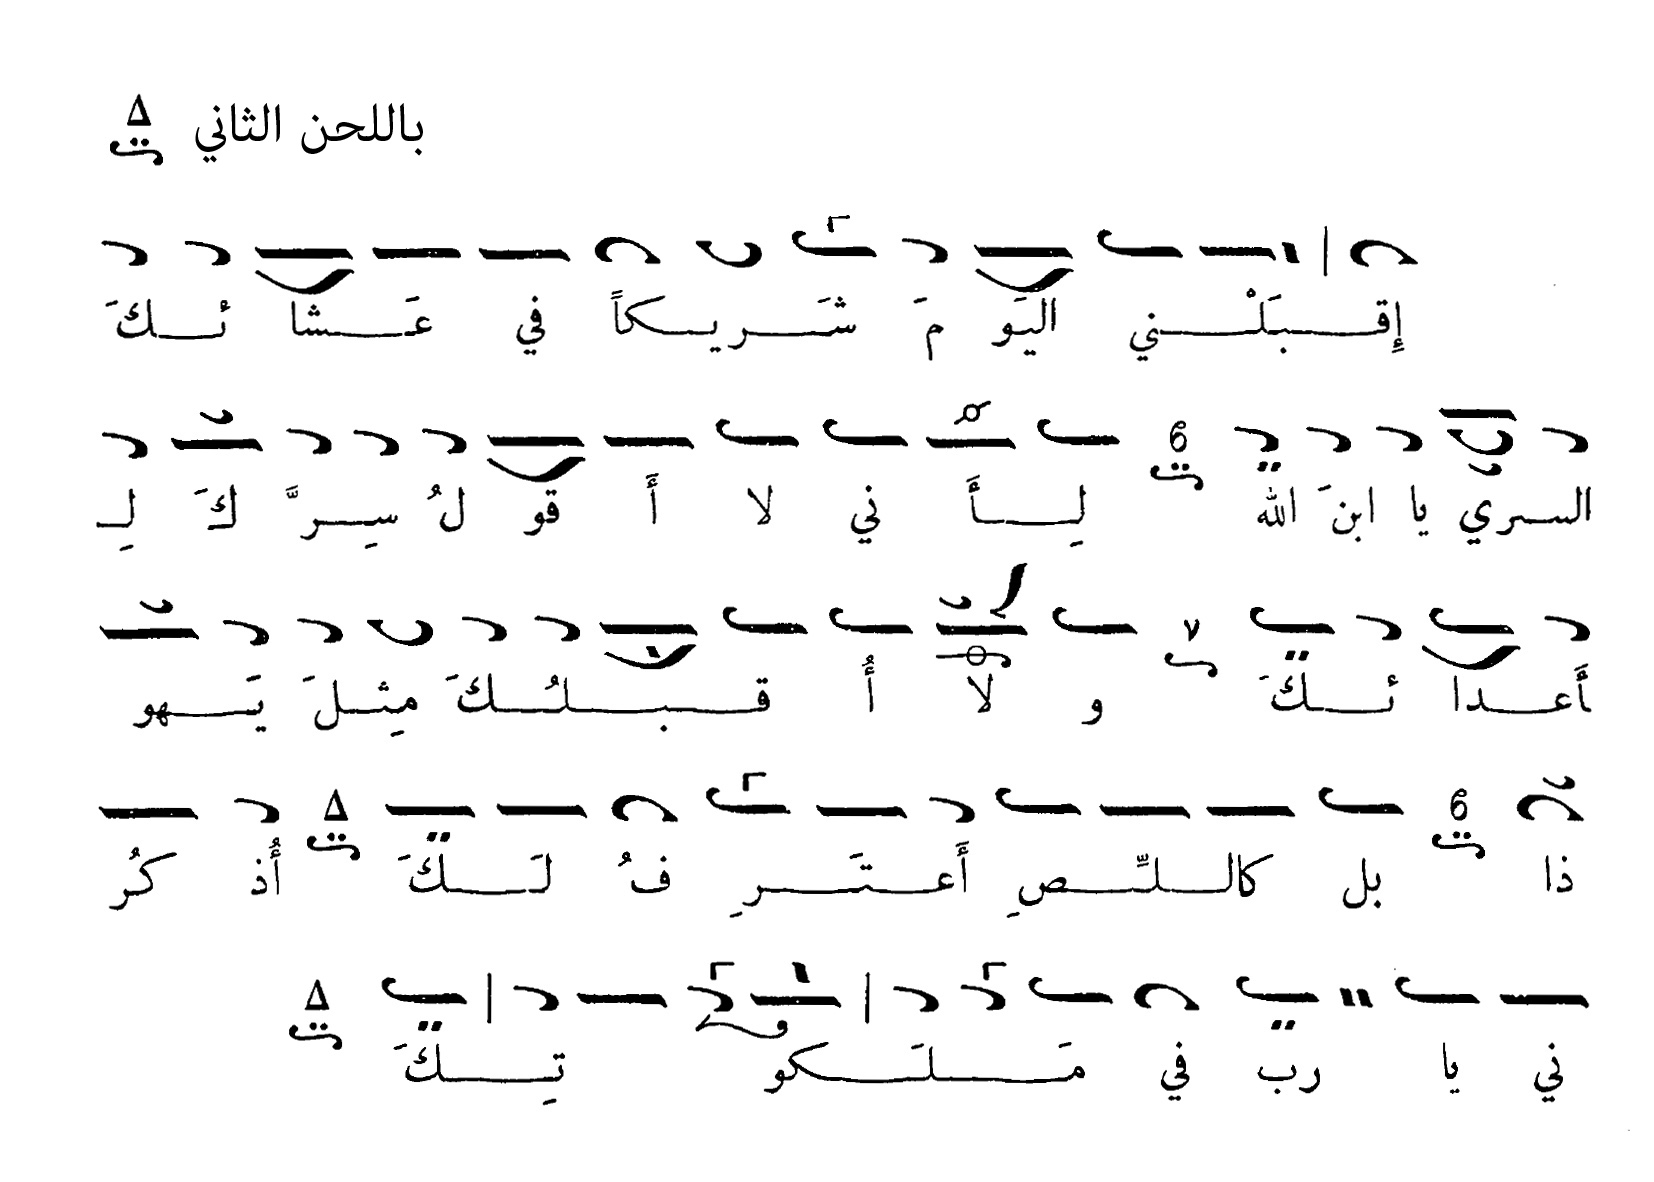 باللحن الثاني
إِقـــبَلْـــني اليَو مَ شَـــريـــكاً في عَـــشا ئـــكَ
الســري يا ابنَ الله لِـــأَ ني لا أَ قو لُ سِـــرَّ كَ لِـ
ـأَعـــدا ئـــكَ و لا أُ قـــبـــلُـــكَ مِثـــلَ يَـــهو
ذا بل كالـــلـــّـصِ أَعـــتَـــرِ فُ لَـــكَ أُذ كُر
ني يا رب في مَـــلَـــكو تِـــكَ